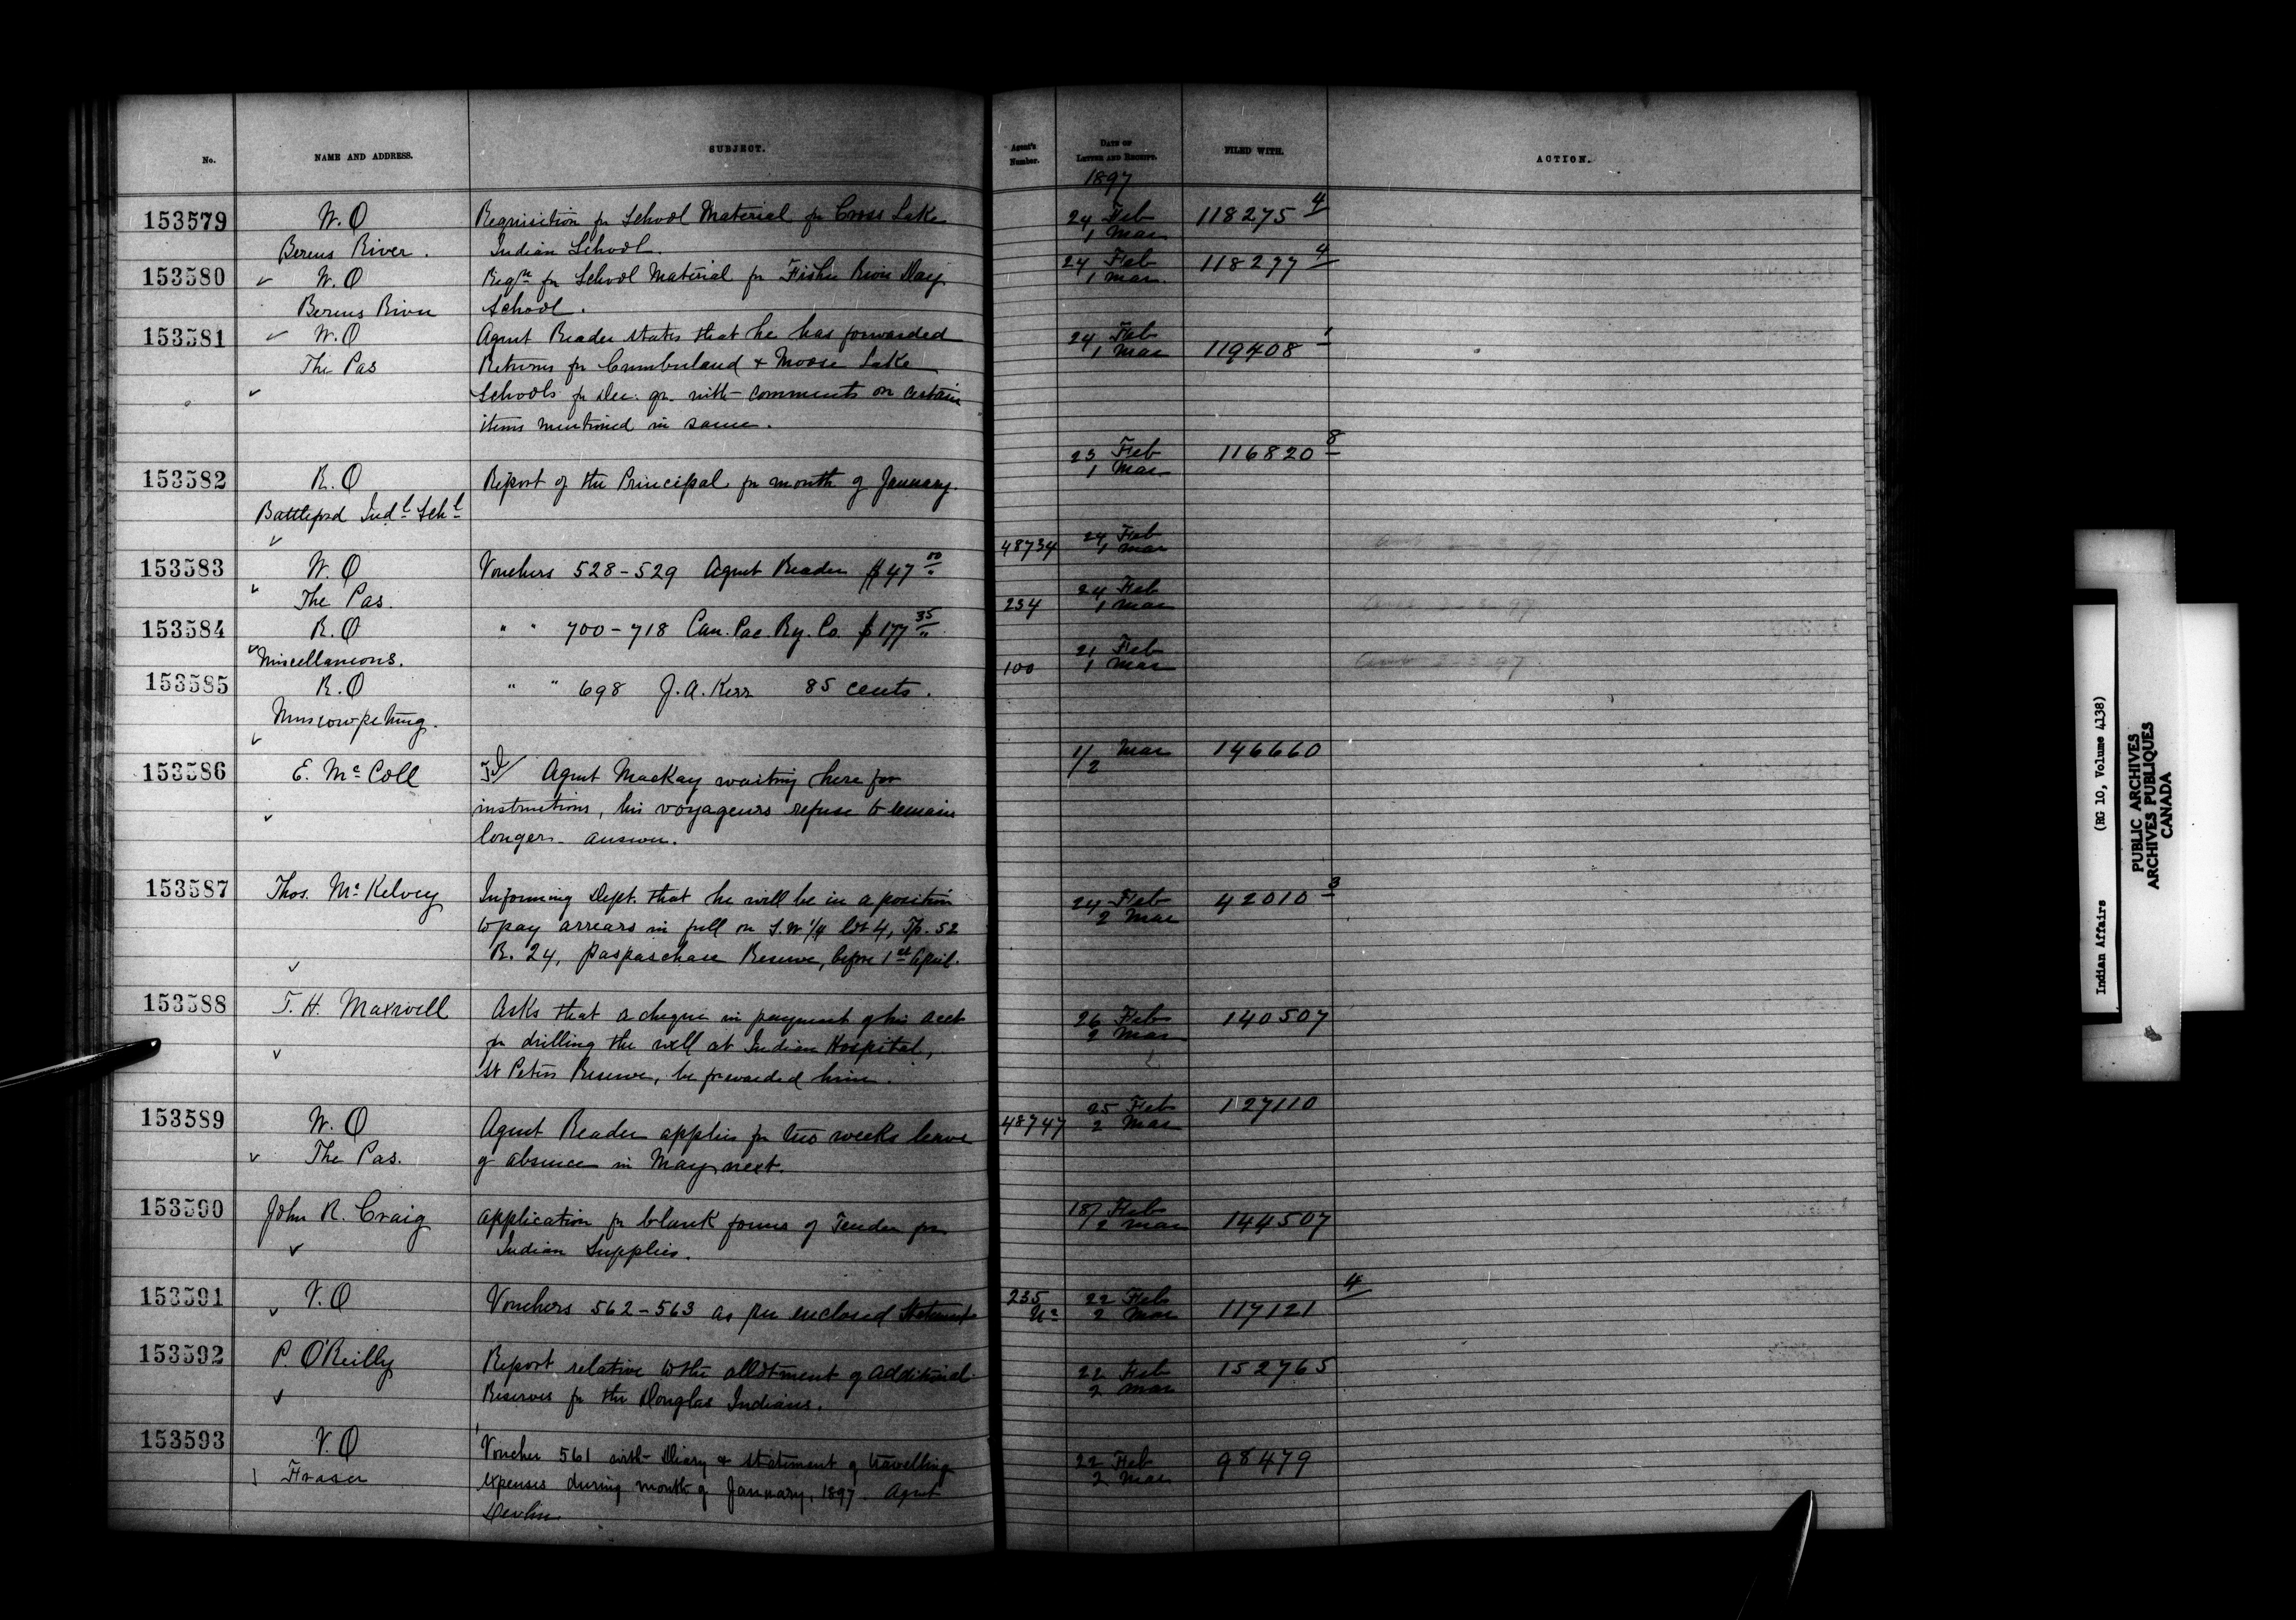 No. NAME AND ADDRESS. SUBJECT. Agent's Number. DATE OF LETTER AND RECEIPT. FILED WITH. ACTION.
1897
153579 W.O Requisition for School Material for Cross Lake 24 Feb 118275 4
Berens River. Indian School. 1 Mar
153580 W.O Reqn for School Material for Fisher River Day 24 Feb 118277 4
Berens River School. 1 Mar
153581 W.O Agent Reader states that he has forwarded 24 Feb 119408 1
The Pas Returns for Cumberland & Moose Lake 1 Mar
Schools for Dec. qr. with comments on certain
items mentioned in same.
153582 R.O Report of the Principal for month of January. 23 Feb 116820 8
Battleford Indl Schl 1 Mar
153583 W.O Vouchers 528-529 Agent Reader $47 00 48734 24 Feb
The Pas. 1 Mar
153584 R.O " " 700-718 Can. Pac. Ry. Co. $177 35 234 24 Feb
Miscellaneous. 1 Mar
153585 R.O " " 698 J.A. Kerr 85 cents. 100 21 Feb
Muscowpetung. 1 Mar
153586 E. McColl Agent MacKay waiting here for 1/2 Mar 146660
instructions, his voyageurs refuse to remain
longer. answer.
153587 Thos. McKelvey Informing Dept. that he will be in a position 24 Feb 42010 3
to pay arrears in full on S.W 1/4 lot 4, Tp. 52 2 Mar
R. 24, Paspaschase Reserve, before 1st April.
153588 T. H. Maxwell Asks that a cheque in payment of his acct 26 Feb 140507
for drilling the well at Indian Hospital, 2 Mar
St Peters Reserve, be forwarded him.
153589 W.O Agent Reader applies for two weeks leave 48747 25 Feb 127110
The Pas. of absence in May next. 2 Mar
153590 John R. Craig application for blank forms of Tender for 18 Feb 144507
Indian Supplies. 2 Mar
153591 V.O Vouchers 562-563 as per enclosed Statement 235 22 Feb 117121 4
2 Mar
153592 P. O'Reilly Report relative to the allotment of additional 22 Feb 152765
Reserves for the Douglas Indians. 2 Mar
153593 V.O Voucher 561 with Diary & statement of travelling 22 Feb 98479
Fraser expenses during month of January, 1897. Agent 2 Mar
Devlin
Indian Affairs (RG 10, Volume 4138)
PUBLIC ARCHIVES
ARCHIVES PUBLIQUES
CANADA